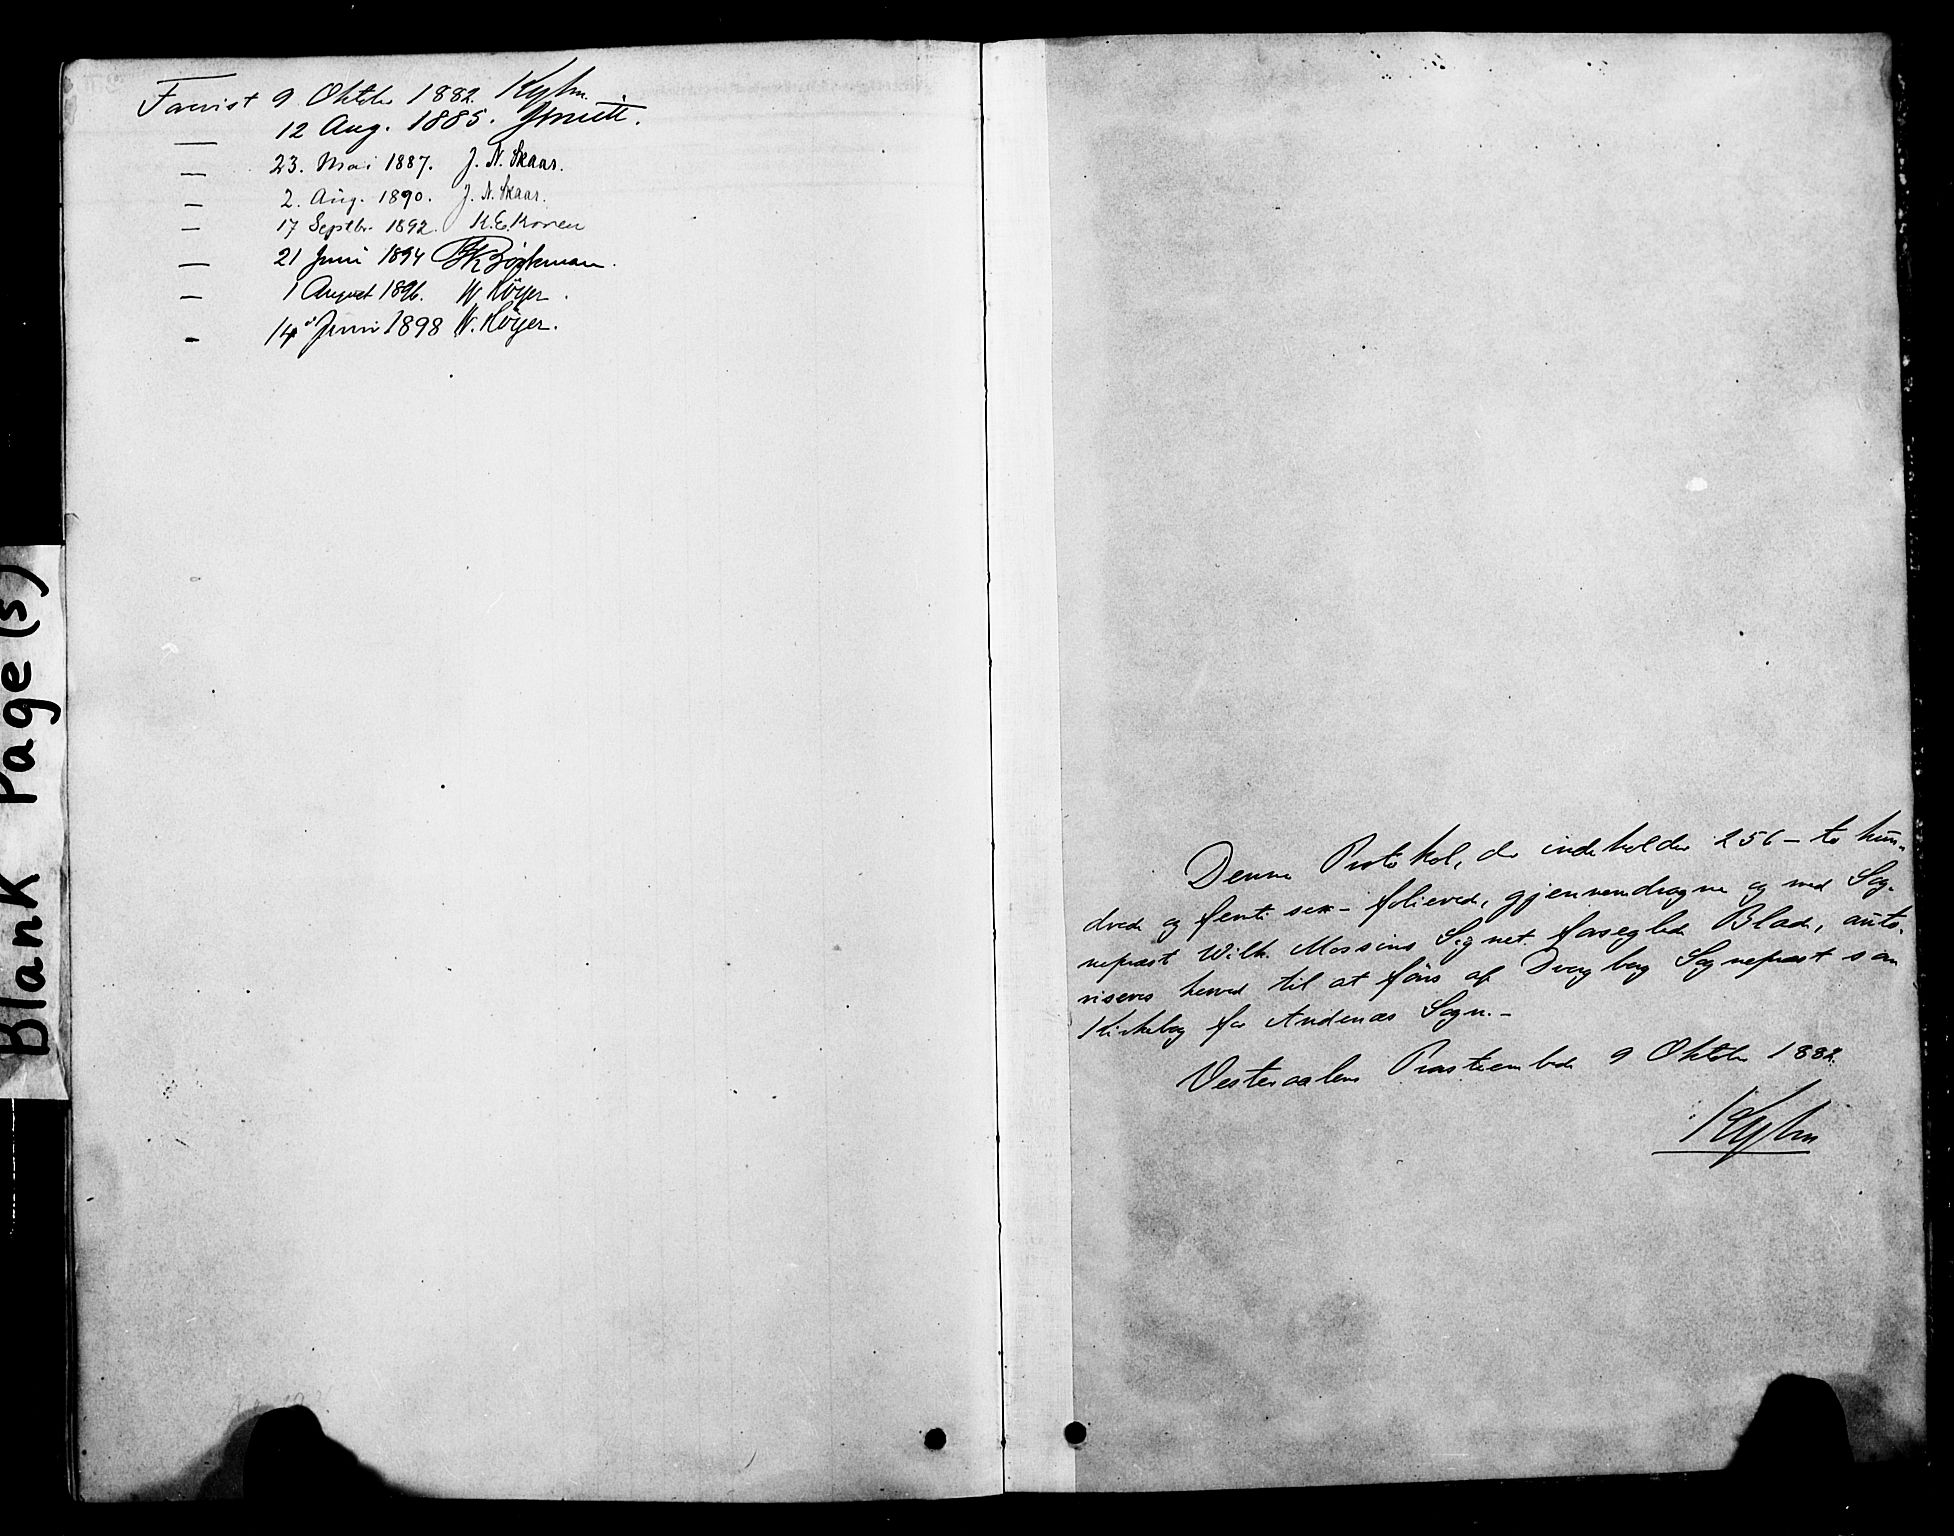 Forevist 9 Oktober 1882. Kyhn.
— 12 Aug. 1885.
— 23. Mai 1887. J. N. Skaar.
— 2. Aug. 1890. J. N. Skaar.
— 17 Septbr. 1892. K. E. Koren
— 21 Juni 1894 Bøckman.
— 1 August 1896. W Höyer.
— 14de Juni 1898 W. Höyer.
Blank Page(s)
Denne Protokol, der indeholder 256 – to hun-
drede og femti sex – folierede, gjennemdragne og med Sog-
nepræst Wilh. Mossins Signet forseglede Blade, auto-
riseres herved til at føres af Dverberg Sognepræst som
Kirkebog for Andenæs Sogn. –
Vesteraalens Prosteembede 9 Oktober 1882.
Kyhn